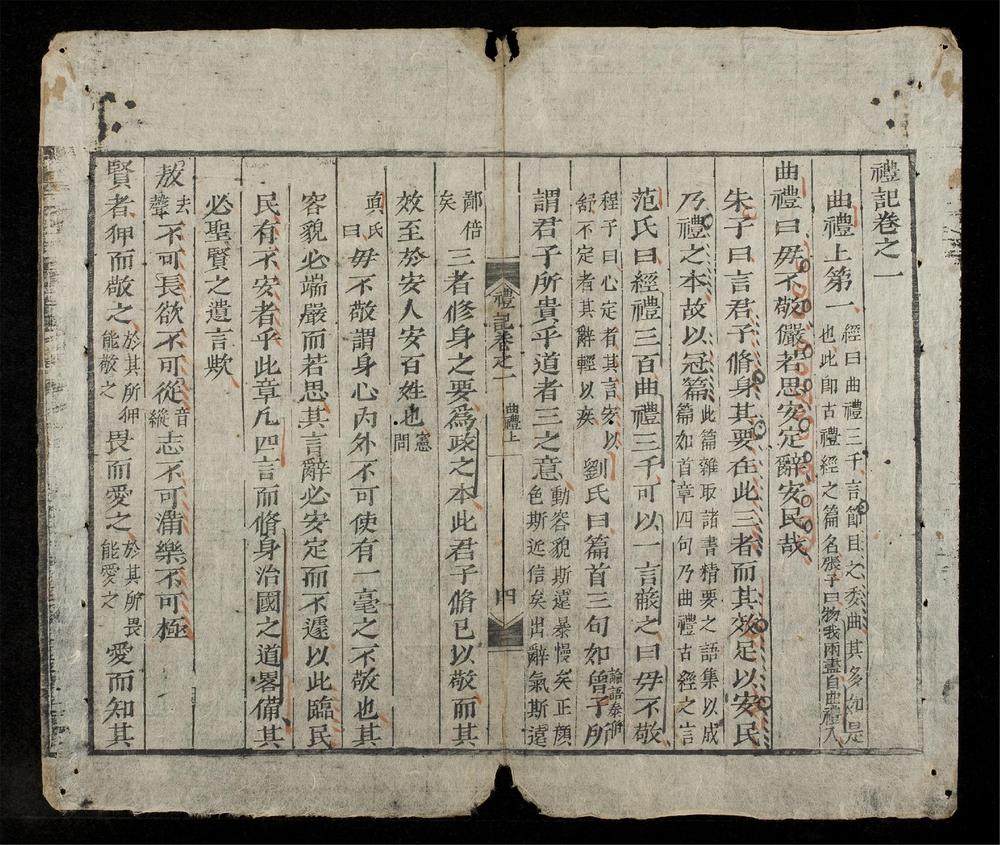 禮記卷之一
曲禮上第一
經曰曲禮三千言節目之委曲其多如是
也此卽古禮經之篇名張子曰物我兩盡自曲禮入
曲禮曰毋不敬儼若思安定辭安民哉
朱子曰言君子脩身其要在此三者而其效足以安民
乃禮之本故以冠篇
此篇雜取諸書精要之語集以成
篇如首章四句乃曲禮古經之言
范氏曰經禮三百曲禮三千可以一言蔽之曰毋不敬
程子曰心定者其言安以
舒不定者其辭輕以疾
劉氏曰篇首三句如曾子所
論語泰伯
謂君子所貴乎道者三之意
動容貌斯遠暴慢矣正顏
色斯近信矣出辭氣斯遠
禮記卷之一
曲禮上
四
鄙倍
矣
三者修身之要爲政之本此君子脩己以敬而其
效至於安人安百姓也
憲
問
眞氏
曰
毋不敬謂身心內外不可使有一毫之不敬也其
容貌必端嚴而若思其言辭必安定而不遽以此臨民
民有不安者乎此章凡四言而脩身治國之道畧備其
必聖賢之遺言歟
敖
去
聲
不可長欲不可從
音
縱
志不可滿樂不可極
賢者狎而敬之
於其所狎
能敬之
畏而愛之
於其所畏
能愛之
愛而知其